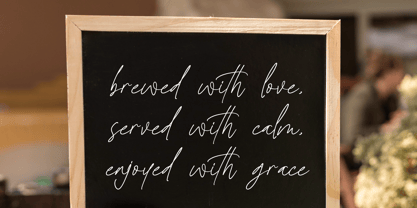 brewed with love,
served with calm,
enjoyed with grace